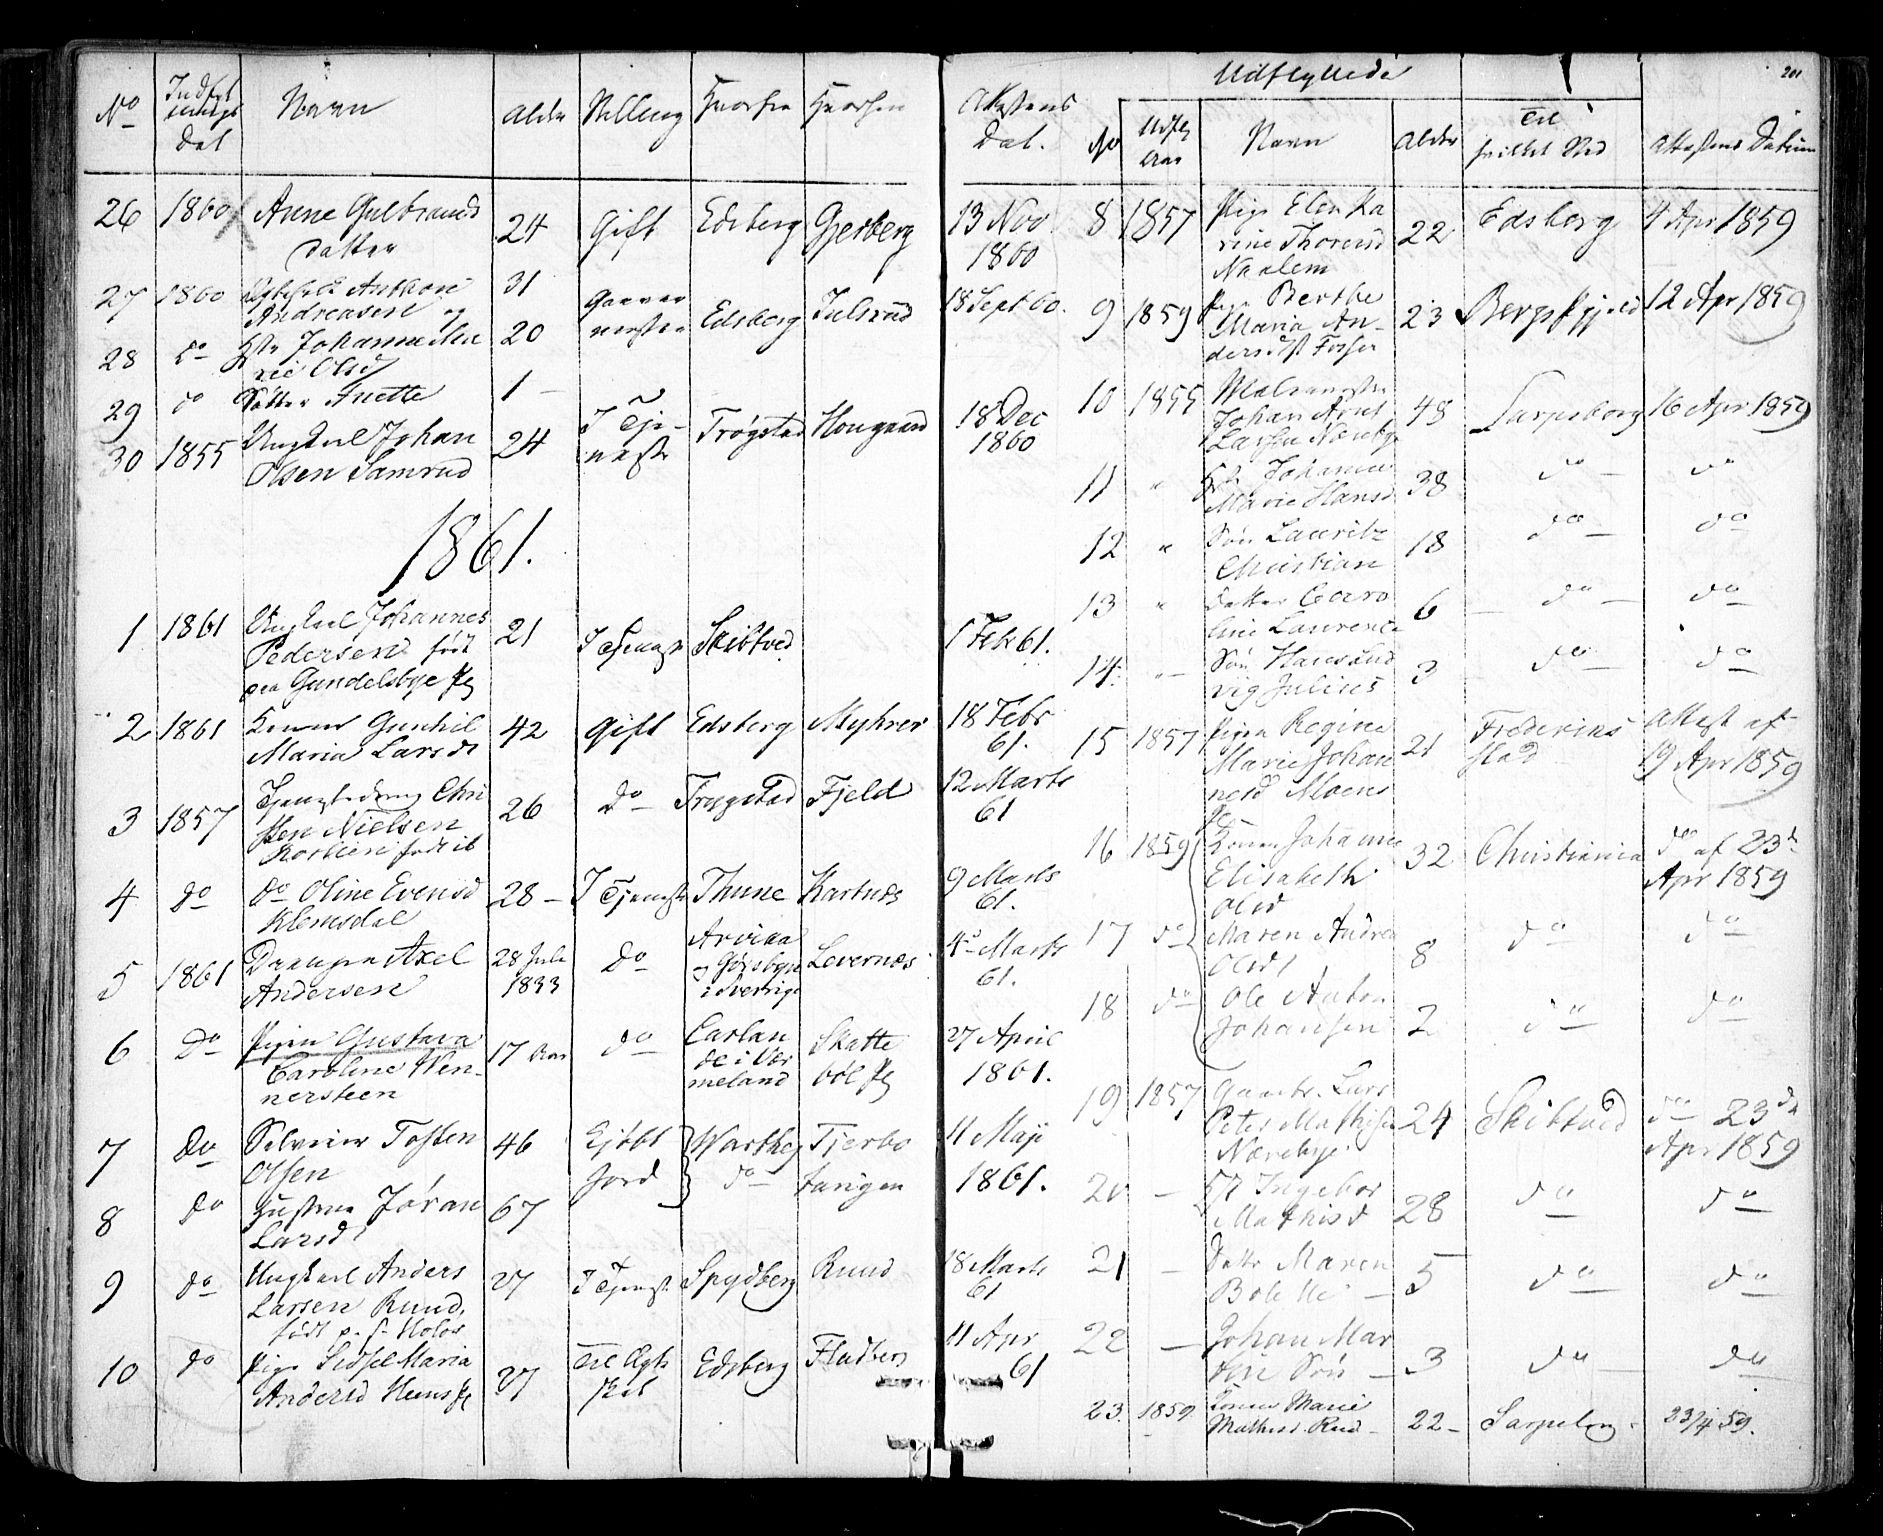 No
Navn
Alder
Stilling
Hvorfra
Hvorhen
Attestens
Dat.
26 1860 Anne Gulbrands
datter
24 Gift Edsberg Gjerberg 13 Nov
1860
27 1860 Anthon
Andreasen og
31
Edsberg Julsrud 18 Sept 60.
28 do Johanne
Olsd
20
29 do Datter Anette 1 –
30 1855 Ungkarl Johan
Olsen Samrud
24 I Tje-
neste
Trøgstad Hougaard 18 Dec
1860
1861.
1 1861 Ungkarl Johannes
Pedersen født
paa Gundelsbye
21 Skibtved 1 Febr 61.
2 1861 Konen Gunhil
Maria Larsdt
42 Gift Edsberg Myhrer 18 Febr
61.
3 1857 Chri
sten Nielsen
26 Do Trygstad Fjeld 12 Marts
61
4 do do Oline Evensd
Klemsdal
28 – I Tjeneste Thune Kartnes 9 Marts
61.
5 1861 Axel
Andersen
28 Juli
1833
Do Arvika
i Sverrige
Levernæs 4de Marts
61.
6 Do Pigen Gustava
Caroline Wen-
nersteen
17 Aar do Carlan
de i Vær
meland
Skatte
bøl
27 April
1861.
7 Do Selveier Tosten
Olsen
46 Kjøbt
Jord
Wartheg Tjerbo 11 Maji
1861.
8 Do Hustrue Jøran
Larsd
67 do
9 do Ungkarl Anders
Larsen Ruud,
født p. s. Holos
27 I Tjenst. Spydberg Ruud 18 Marts
61
10 do Pige Sidsel Maria
Andersd
27 Til Ægte
skab
Edsberg Fladberg 11 Apr
61
Udflyttede
201
No
Udfl
Aar
Navn
Alder
Til
hvilket Sted
Attestens Datum
8 1857 Pige Elen Ka
rine Thorensd
Naalem
22 Edsberg 4 Apr 1859
9 1859 Berthe
Maria An-
dersdt Fosser
23 12 Apr 1859
10 1855
Johan Arnt
Larsen Narebye
48 Sarpsborg 16 Apr 1859
11 " Johanne
Marie Hansd
38 do – do
12 " Søn Lauritz
Christian
18 do – do
13 " Datter Caro
line Laurence
6 – do – do
14 " – Søn Hans Lud
vig Julius
3 do do
15 1857 Pigen Regine
Marie Johan
nesd Moens
21 Frederiks
stad
Attest af
19 Apr 1859
16 1859 Konen Johanne
Elisabeth
Olsd
32 Christiania do af 23de
Apr 1859
17 do Maren Andrea
Olsd
8 do do
18 do Ole Anton
Johansen
2 do do
19 1857 Lars
Peter Mathisen
Narebye
24 Skibtved do 23de
Apr 1859
20 – Ingebor
Mathisd
28 do do
21 – Datter Maren
Bolette –
5 do do
22 – Johan Mar
thin Søn –
3 do – do
23 1859 Konen Marie
Mathisd. Rud –
22 – Sarpsborg. 23/4 59.